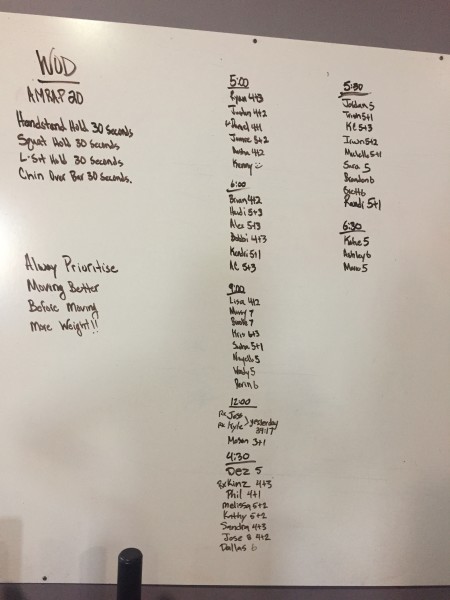 WOD
AMRAP 20
Handstand Hold 30 seconds
Squat Hold 30 seconds
L-Sit Hold 30 seconds
Chin Over Bar 30 seconds.
Alway Prioritise
Moving Better
Before Moving
More Weight!!
5:00
Ryan 4+3
4+2
4+1
5+2
4+2
Kenny
6:00
Brian 4+2
Heidi 5+3
Alex 5+3
Bobbi 4+3
Kendri 5+1
AC 5+3
9:00
Lisa 4+2
Missy 7
7
Kris 6+3
5+1
5
Wendy 5
Perin 6
12:00
Rx Josh
Rx Kyle
yesterday
39:17
Megan 3+1
4:30
Dez 5
Rx Kinz 4+3
Phil 4+1
melissa 5+2
Kathy 5+2
Sandra 4+3
Jose 4+2
Dallas 6
5:30
Jordan 5
Trish 5+1
KC 5+3
Irwin 5+2
Michelle 5+1
Sara 5
Brandon 6
6
Randi 5+1
6:30
Katie 5
Ashley 6
5